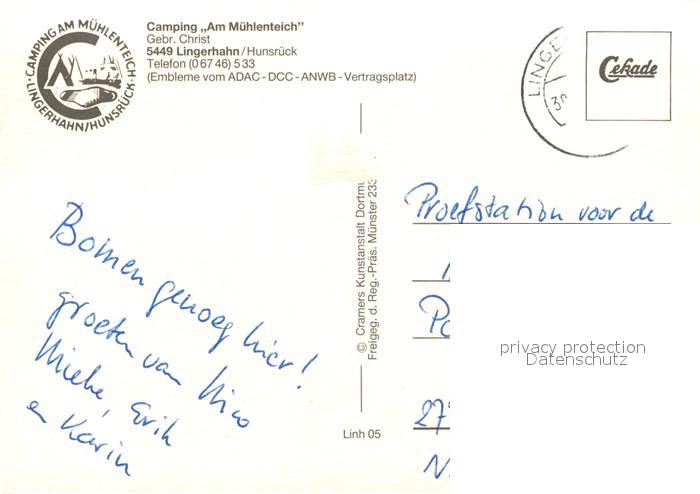 CAMPING AM MÜHLENTEICH
LINGERHAHN/HUNSRÜCK
Camping „Am Mühlenteich”
Gebr. Christ
5449 Lingerhahn/Hunsrück
Telefon (0 67 46) 5 33
(Embleme vom ADAC - DCC - ANWB - Vertragsplatz)
LINGE
Cekade
© Cramers Kunstanstalt Dortmu
Freigeg. d. Reg.-Präs. Münster 233
Proefstation voor de
Bomen genoeg hier!
groeten van Nico
Mieke, Erik
en Karin
Linh 05
privacy protection
Datenschutz